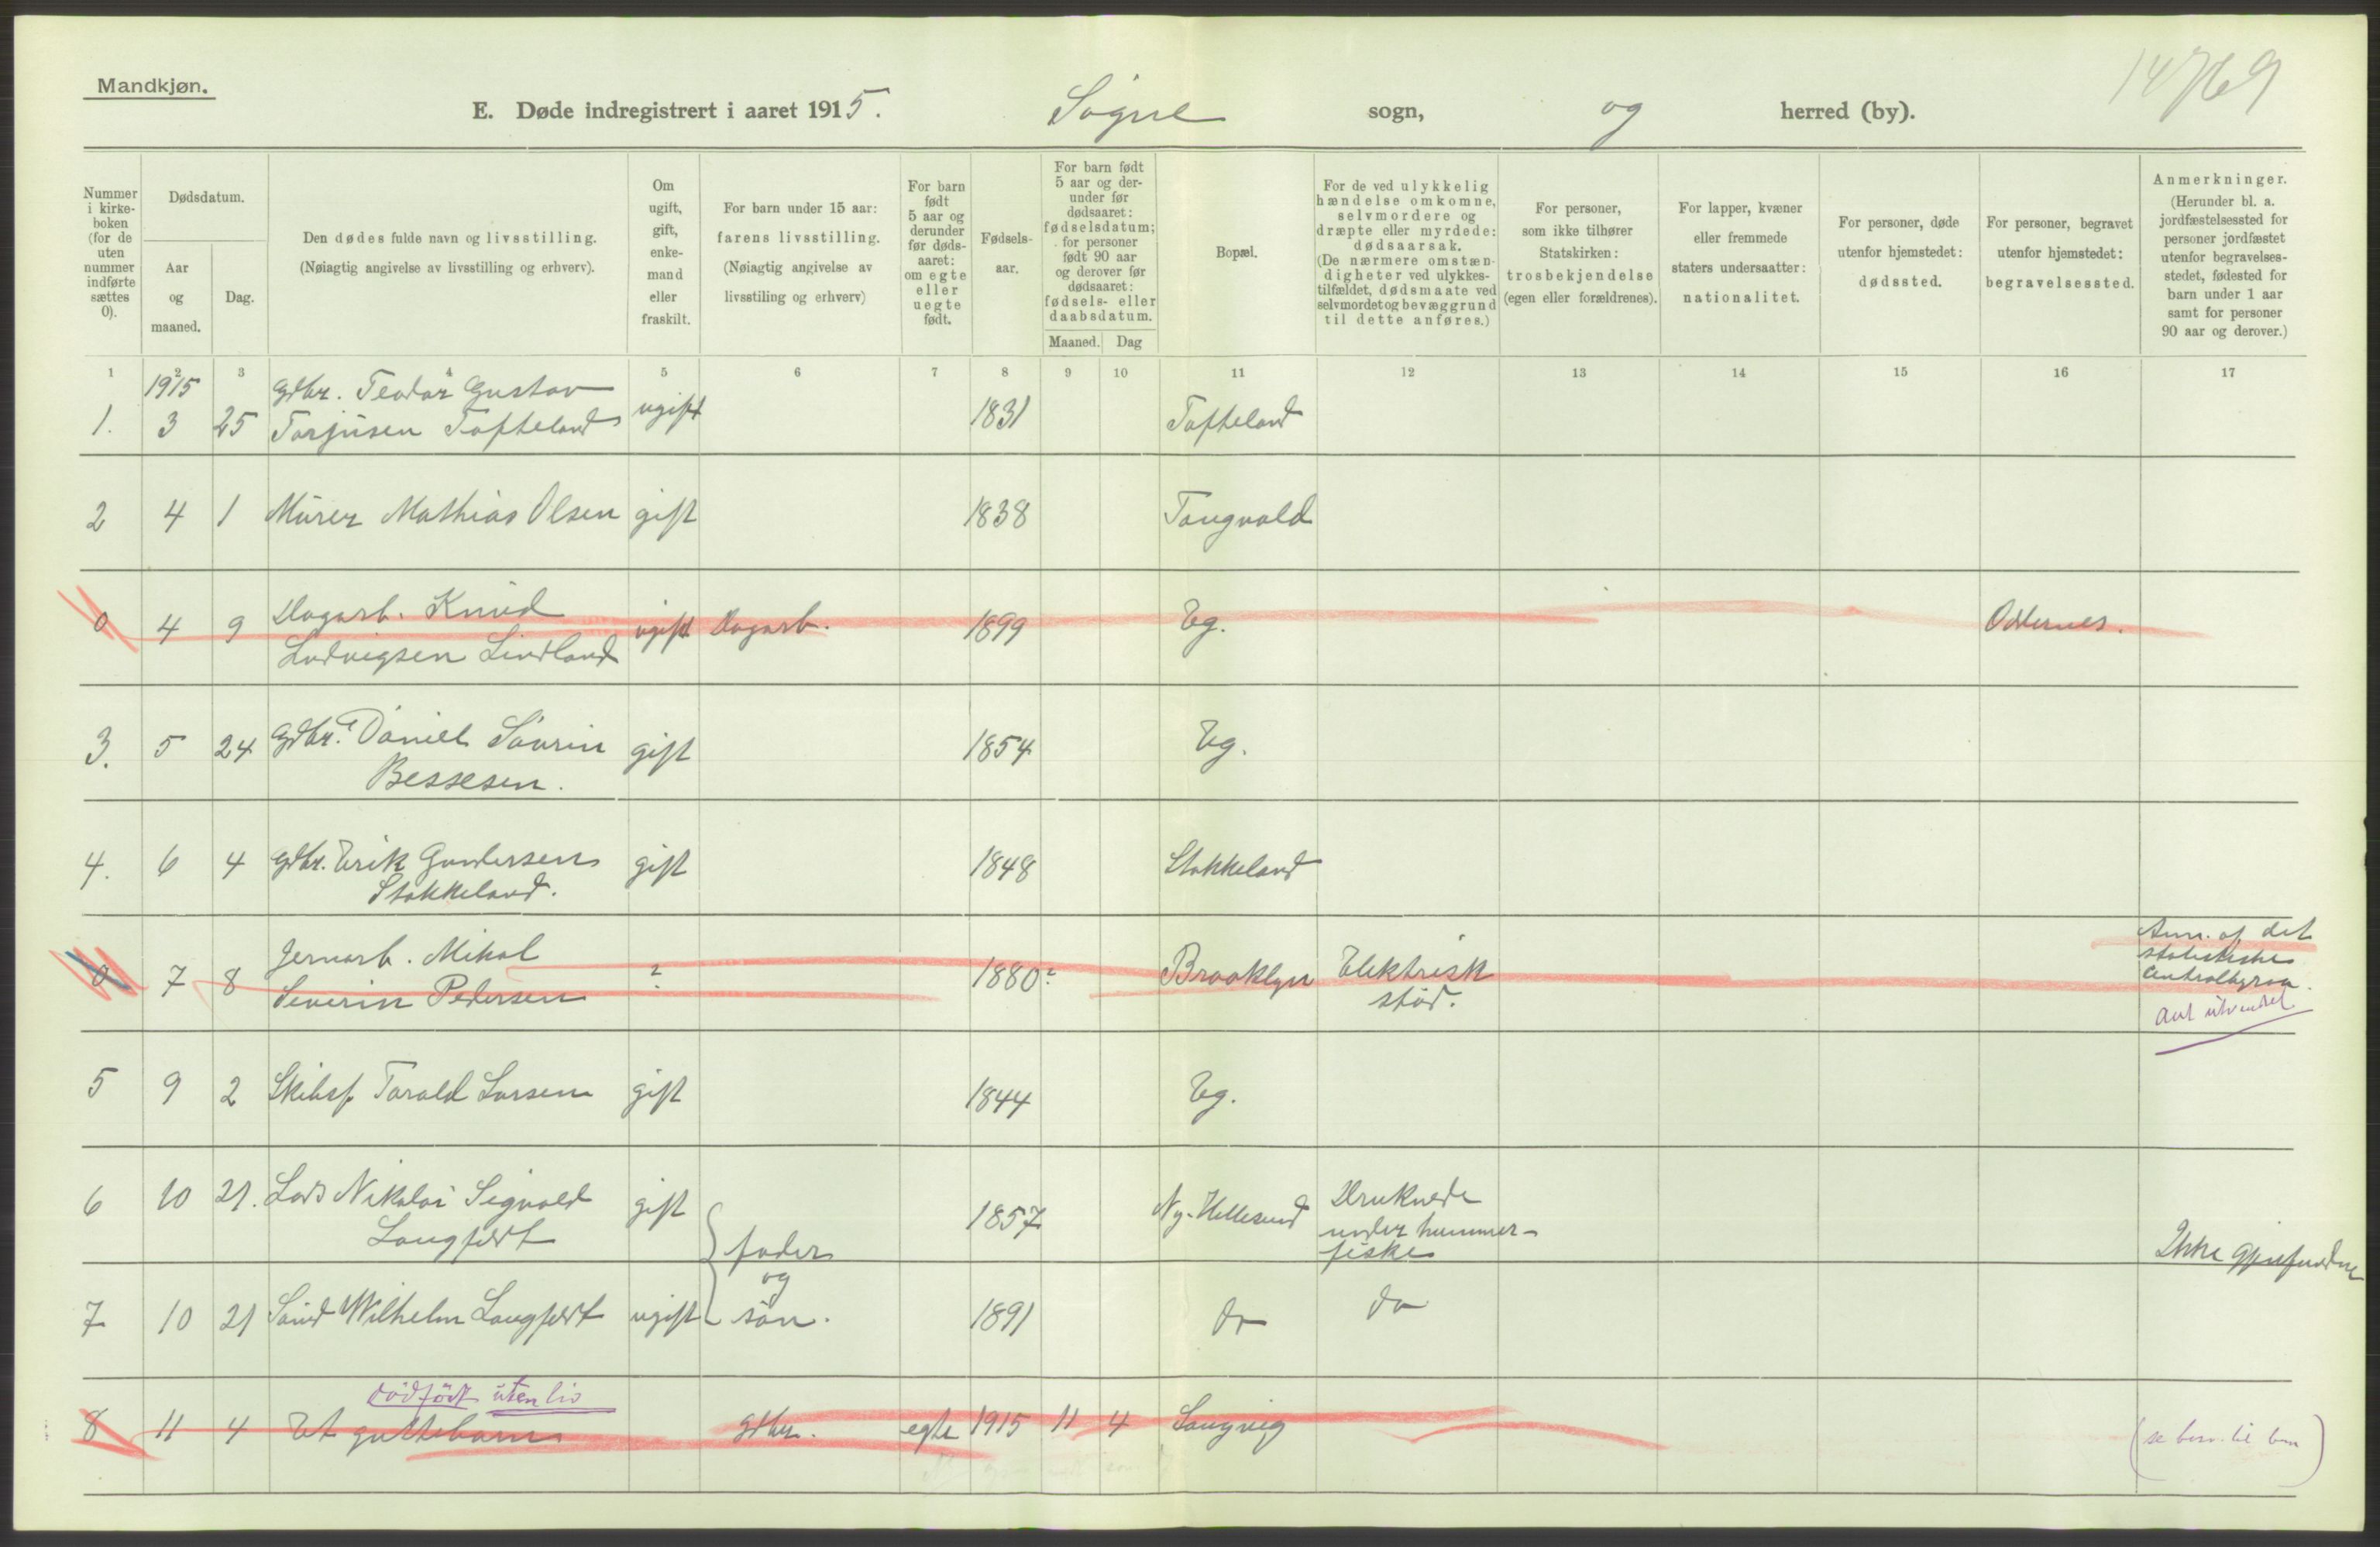 Mandkjøn.
14769
E. Døde indregistrert i aaret 1915. Søgne sogn, og herred (by).
Nummer i kirke-boken (for de uten nummer indførte sættes 0).
Dødsdatum.
Aar og maaned.
Dag.
Den dødes fulde navn og livsstilling.
(Nøiagtig angivelse av livsstilling og erhverv).
Om ugift, gift, enke-mand eller fraskilt.
For barn under 15 aar: farens livsstilling.
(Nøiagtig angivelse av livsstiling og erhverv)
For barn født 5 aar og derunder før døds-aaret: om egte eller uegte født.
Fødsels-aar.
For barn født 5 aar og der-under før dødsaaret: fødselsdatum; for personer født 90 aar og derover før dødsaaret: fødsels- eller daabsdatum.
Maaned. Dag
Bopæl.
For de ved ulykkelig hændelse omkomne, selvmordere og dræpte eller myrdede: dødsaarsak.
(De nærmere omstæn-digheter ved ulykkes-tilfældet, dødsmaate ved selvmordet og bevæggrund til dette anføres.)
For personer, som ikke tilhører Statskirken: trosbekjendelse (egen eller forældrenes).
For lapper, kvæner eller fremmede staters undersaatter: nationalitet.
For personer, døde utenfor hjemstedet: dødssted.
For personer, begravet utenfor hjemstedet: begravelsessted.
Anmerkninger.
(Herunder bl. a. jordfæstelsessted for personer jordfæstet utenfor begravelses-stedet, fødested for barn under 1 aar samt for personer 90 aar og derover.)
1 2 3 4 5 6 7 8 9 10 11 12 13 14 15 16 17
1915 Gdbr. Teodor Gustav
1. 3 25 Torjusen Tofteland ugift 1831 Tofteland
2 4 1 Murer Mathias Olsen gift 1838 Tangvald
0 4 9 Dagarb. Knud ugift Dagarb. 1899 Eg. Oddernes.
Ludvigsen Lindland
3. 5 24 Gdbr. Daniel Sövrin gift 1854 Eg.
Bessesen.
4. 6 4 Gdbr. Erik Gundersen gift 1848 Stokkeland
Stokkeland.
0 7 8 Jernarb. Mikal ? 1880? Brooklyn Elektrisk
Severin Pedersen stöd.
Anm. af det
statistiske
Centralbyraa.
ant utvandret
5 9 2 Skibsf. Torald Larsen gift 1844 Eg.
6 10 21. Lars Nikolai Sigvald gift 1857 Ny-Hellesund Druknede
Langfeldt under hummer-
fader fiske Ikke gjenfundne
og
7 10 21 Wilhelm Langfeldt ugift sön. 1891 do do
dödfödt uten liv
8 11 4 Et guttebarn Gdbr. egte 1915 11 4 Langvig